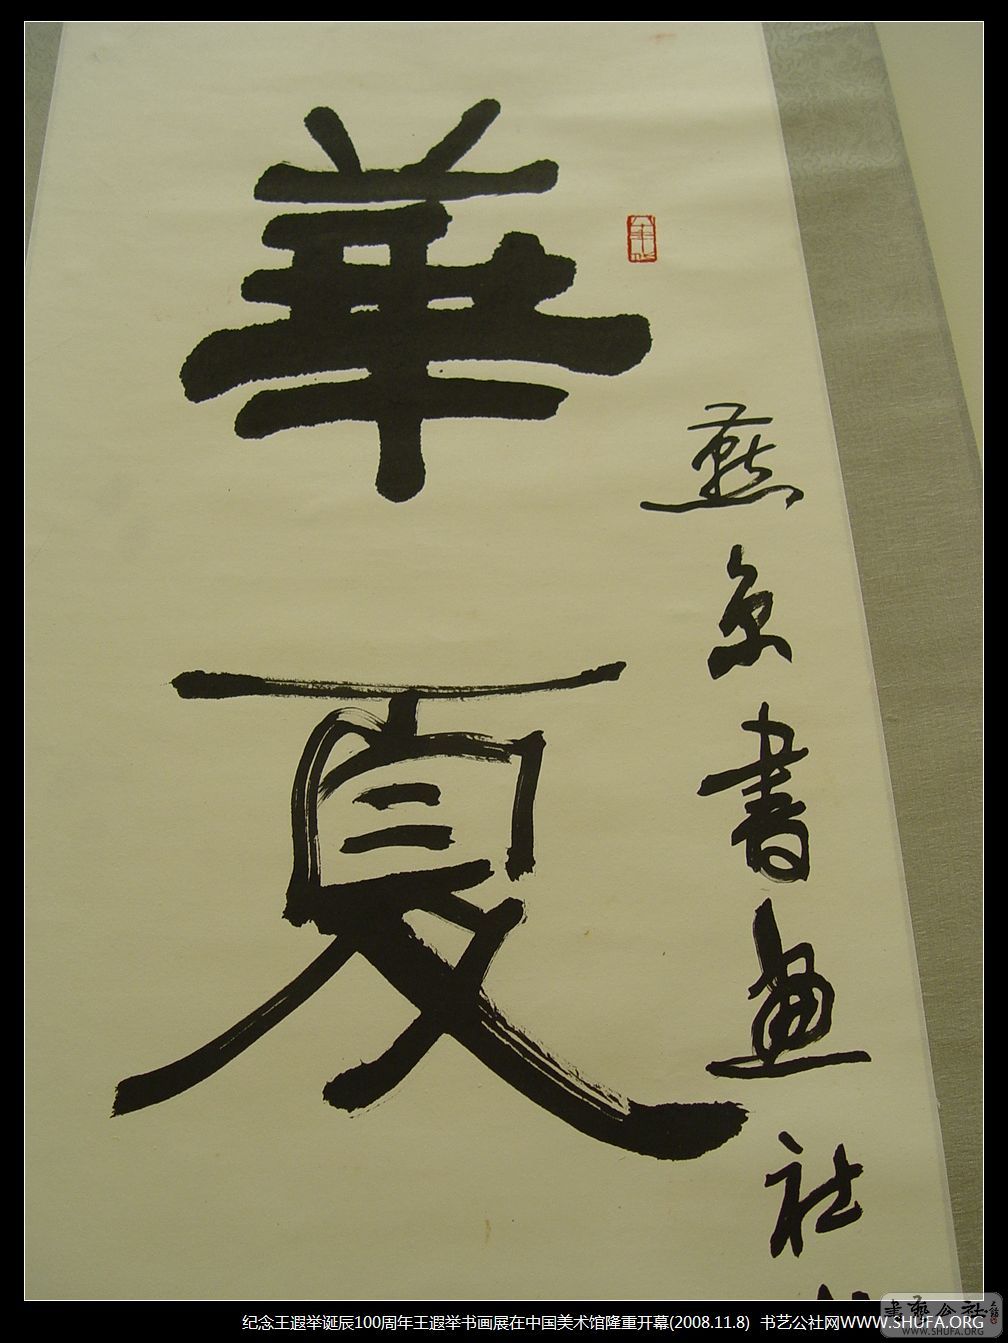 華夏
燕京書畫社
纪念王遐举诞辰100周年王遐举书画展在中国美术馆隆重开幕(2008.11.8) 书艺公社网WWW.SHUFA.ORG
書艺公社
WWW.SHUFA.ORG